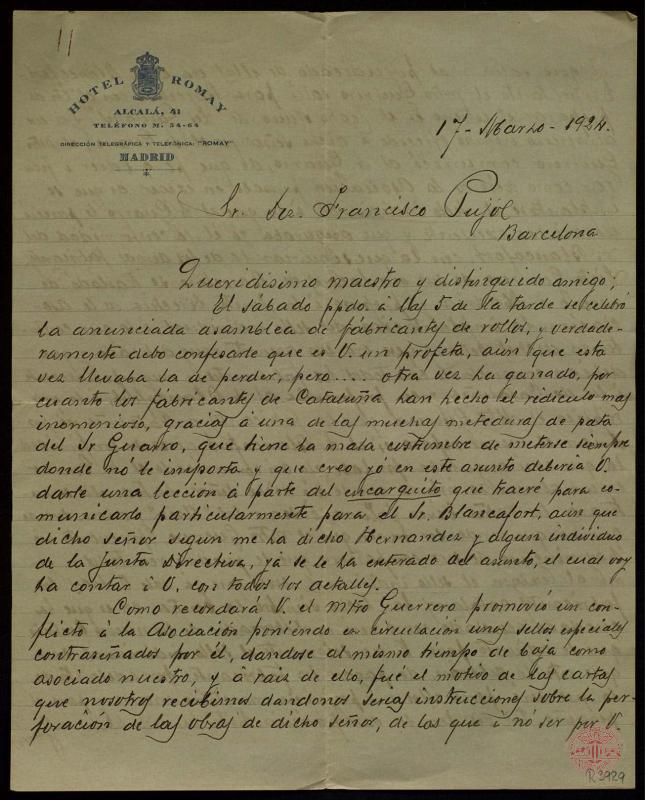 11
HOTEL ROMAY
ALCALÁ, 41
TELÉFONO M. 54-64
DIRECCIÓN TELEGRÁFICA Y TELEFÓNICA: "ROMAY"
MADRID
17- Marzo- 1924.
Sr. Dn. Francisco Pujol
Barcelona
Queridisimo maestro y distinguido amigo;
El sábado ppdo. á las 5 de la tarde se celebró
la anunciada asamblea de fábricantes de rollos, y verdade-
ramente debo confesarle que es V. un profeta, aún que esta
vez llevaba la de perder, pero.... otra vez ha ganado, por
cuanto los fabricantes de Cataluña han hecho el ridiculo mas
inominioso, gracias á una de las muchas meteduras de pata
del Sr Guarro, que tiene la mala costumbre de meterse siempre
donde nó le importa y que creo yó en este asunto deberia V.
darle una lección á parte del encarguito que traeré para co-
municarlo particularmente para el Sr. Blancafort, aún que
dicho señor segun me ha dicho Hernandez y algun individuo
de la Junta Directiva, yá se le ha enterado del asunto, el cual voy
ha contar á V. con todos los detalles.
Como recordará V. el Mtro Guerrero promovió un con-
flicto á la Asociación poniendo en circulación unos sellos especiales
contraseñados por él, dándose al mismo tiempo de baja como
asociado nuestro, y á raiz de ello, fué el motivo de las cartas
que nosotros recibimos dandonos serias instrucciones sobre la per-
foración de las obras de dicho señor, de las que i nó ser por V.
R.3929